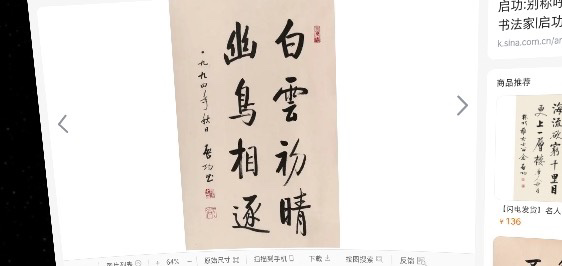 白雲初晴
幽鳥相逐
一九九四年秋日 啓功書
启功:别称呼
书法家|启功
k.sina.com.cn/ar
商品推荐
海流
欲窮千里目
更上一層樓
【闪电发货】名人
¥136
64%
原始尺寸
扫描到手机
下载
按图搜索
反馈